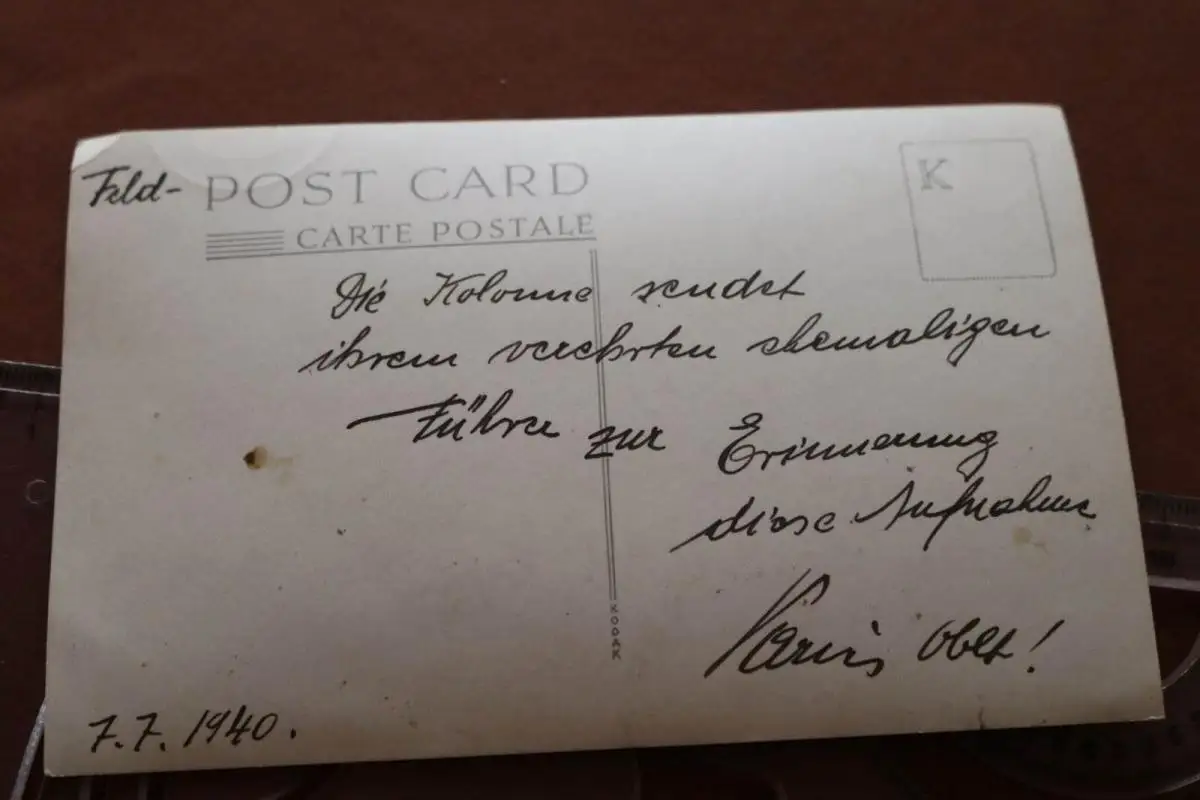 Feld- POST CARD
CARTE POSTALE
K
Die Kolonne sendet
ihrem verehrten ehemaligen
Führer zur Erinnerung
diese Aufnahme
Oblt!
KODAK
7.7.1940.